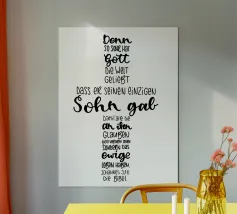 Denn
SO SEHR HAT
Gott
DIE WELT
GELIEBT
DASS ER SEINEN EINZIGEN
Sohn gab
DAMIT ALLE DIE
an den
GLAUBEN
NICHT VERLOREN GEHEN
SONDERN DAS
ewige
LEBEN HABEN
JOHANNES 3:16
DIE BIBEL